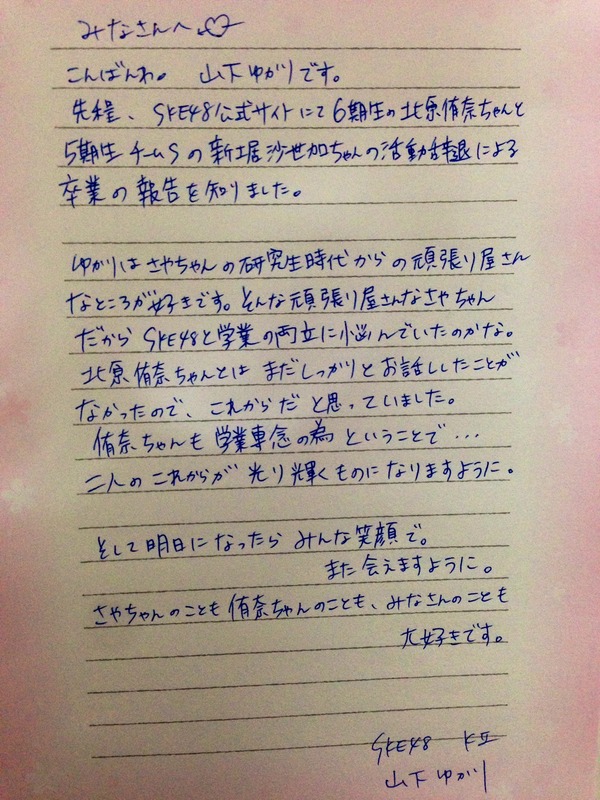 みなさんへ♡
こんばんわ。 山下ゆかりです。
先程、SKE48公式サイトにて6期生の北原侑奈ちゃんと
5期生チームSの新土居沙也加ちゃんの活動辞退による
卒業の報告を知りました。
ゆかりはさやちゃんの研究生時代からの頑張り屋さん
なところが好きです。そんな頑張り屋さんなさやちゃん
だからSKE48と学業の両立に小悩んでいたのかな。
北原侑奈ちゃんとはまだしっかりとお話ししたことが
なかったので、これからだと思っていました。
侑奈ちゃんも学業専念の為ということで・・・
二人のこれからが光り輝くものになりますように。
そして明日になったらみんな笑顔で。
また会えますように。
さやちゃんのことも侑奈ちゃんのことも、みなさんのことも
大好きです。
SKE48 KⅡ
山下ゆかり